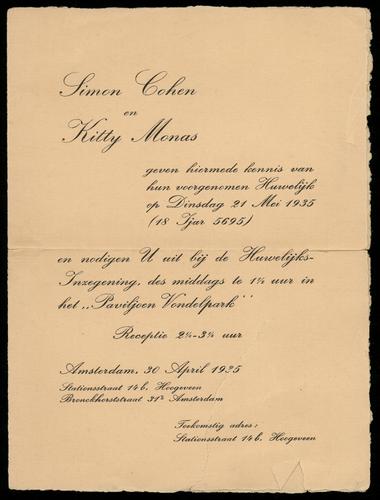 Simon Cohen
en
Kitty Monas
geven hiermede kennis van
hun voorgenomen Huwelijk
op Dinsdag 21 Mei 1935
(18 Ijar 5695)
en noodigen U uit bij de Huwelijks-
Inzegening, des middags te 1¼ uur in
het „Paviljoen Vondelpark"
Receptie 2¼-3¼ uur
Amsterdam, 30 April 1935
Stationsstraat 14b, Hoogeveen
Bronckhorststraat 31² Amsterdam
Toekomstig adres:
Stationsstraat 14b, Hoogeveen